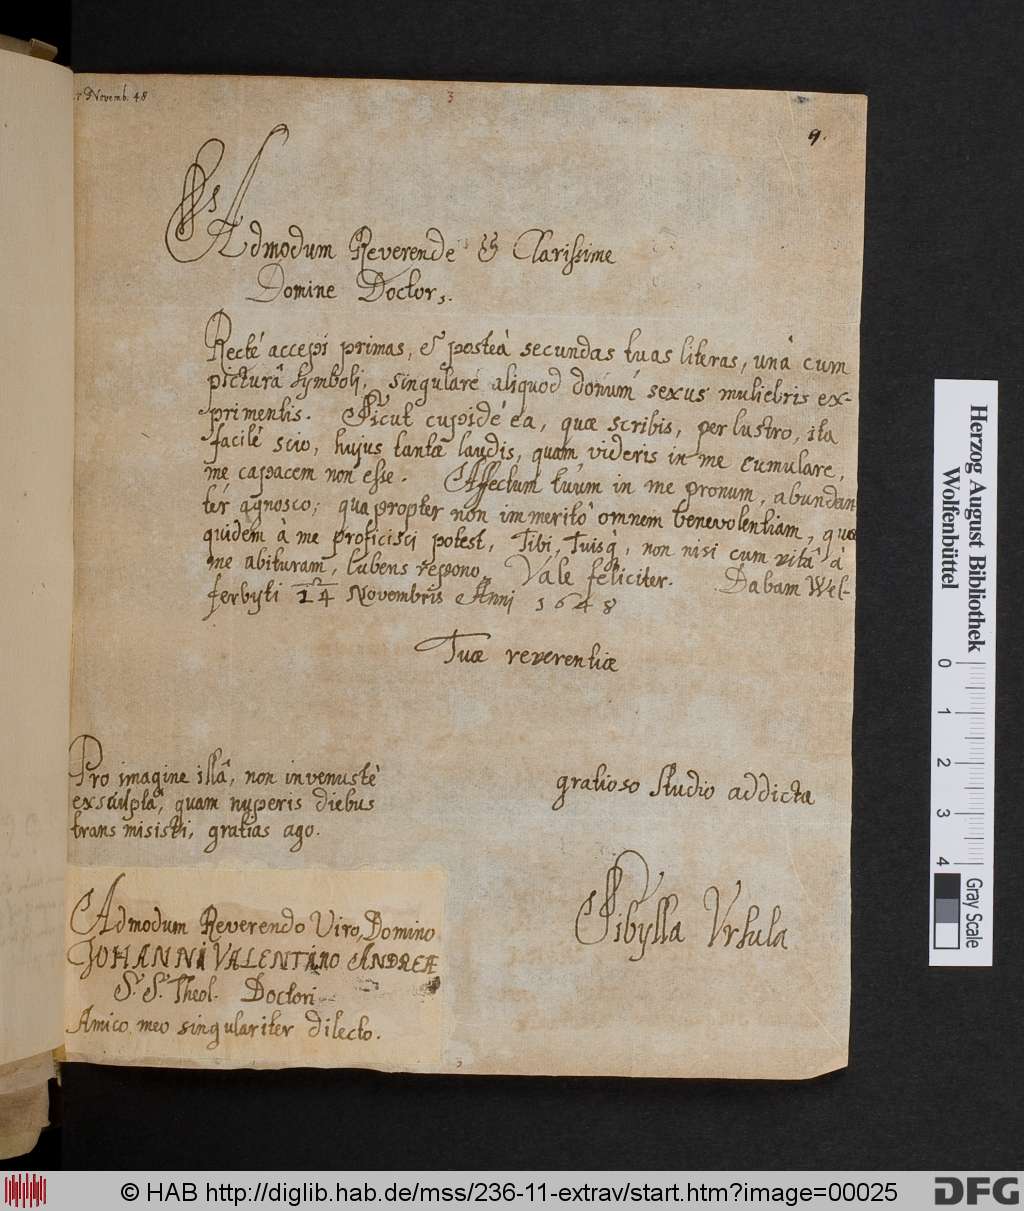 7 Novemb. 48
3
9.
Admodum Reverende & Clarissime
Domine Doctor,.
Rectè accepi primas, & posteà secundas tuas literas, unà cum
picturâ symboli, singularè aliquod donum sexus muliebris ex-
primentis. Sicut cupidè ea, quæ scribis, perlustro, ita
facilè scio, hujus tantæ laudis, quam videris in me cumulare,
me capacem non esse. Affectum tuum in me pronum, abundan
tèr agnosco; quapropter non immeritò omnem benevolentiam, quæ
quidem à me proficisci potest, Tibi, Tuisq, non nisi cum vitâ à
me abituram, lubens repono. Vale feliciter. Dabam Wel-
ferbyti 14 Novembris Anni 1648
Tuæ reverentiæ
Pro imagine illâ, non invenustè
exsculptâ, quam nuperis diebus
transmisisti, gratias ago.
gratioso studio addicta
Sibylla Ursula
Admodum Reverendo Viro, Domino
JOHANNI VALENTINO ANDREÆ
S. S. Theol. Doctori
Amico meo singulariter dilecto.
Herzog August Bibliothek
Wolfenbüttel
0 1 2 3 4
Gray Scale
© HAB http://diglib.hab.de/mss/236-11-extrav/start.htm?image=00025
DFG